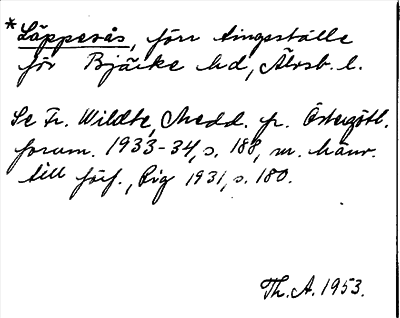 *Läpperås, förr tingsställe
för Bjärke hd, Älvsb. l.
Se Fr. Wildte, Medd. fr. Östergötl.
fornm. 1933-34, s. 188, m. hänv.
till förf., Rig 1931, s. 180.
Th. A. 1953.